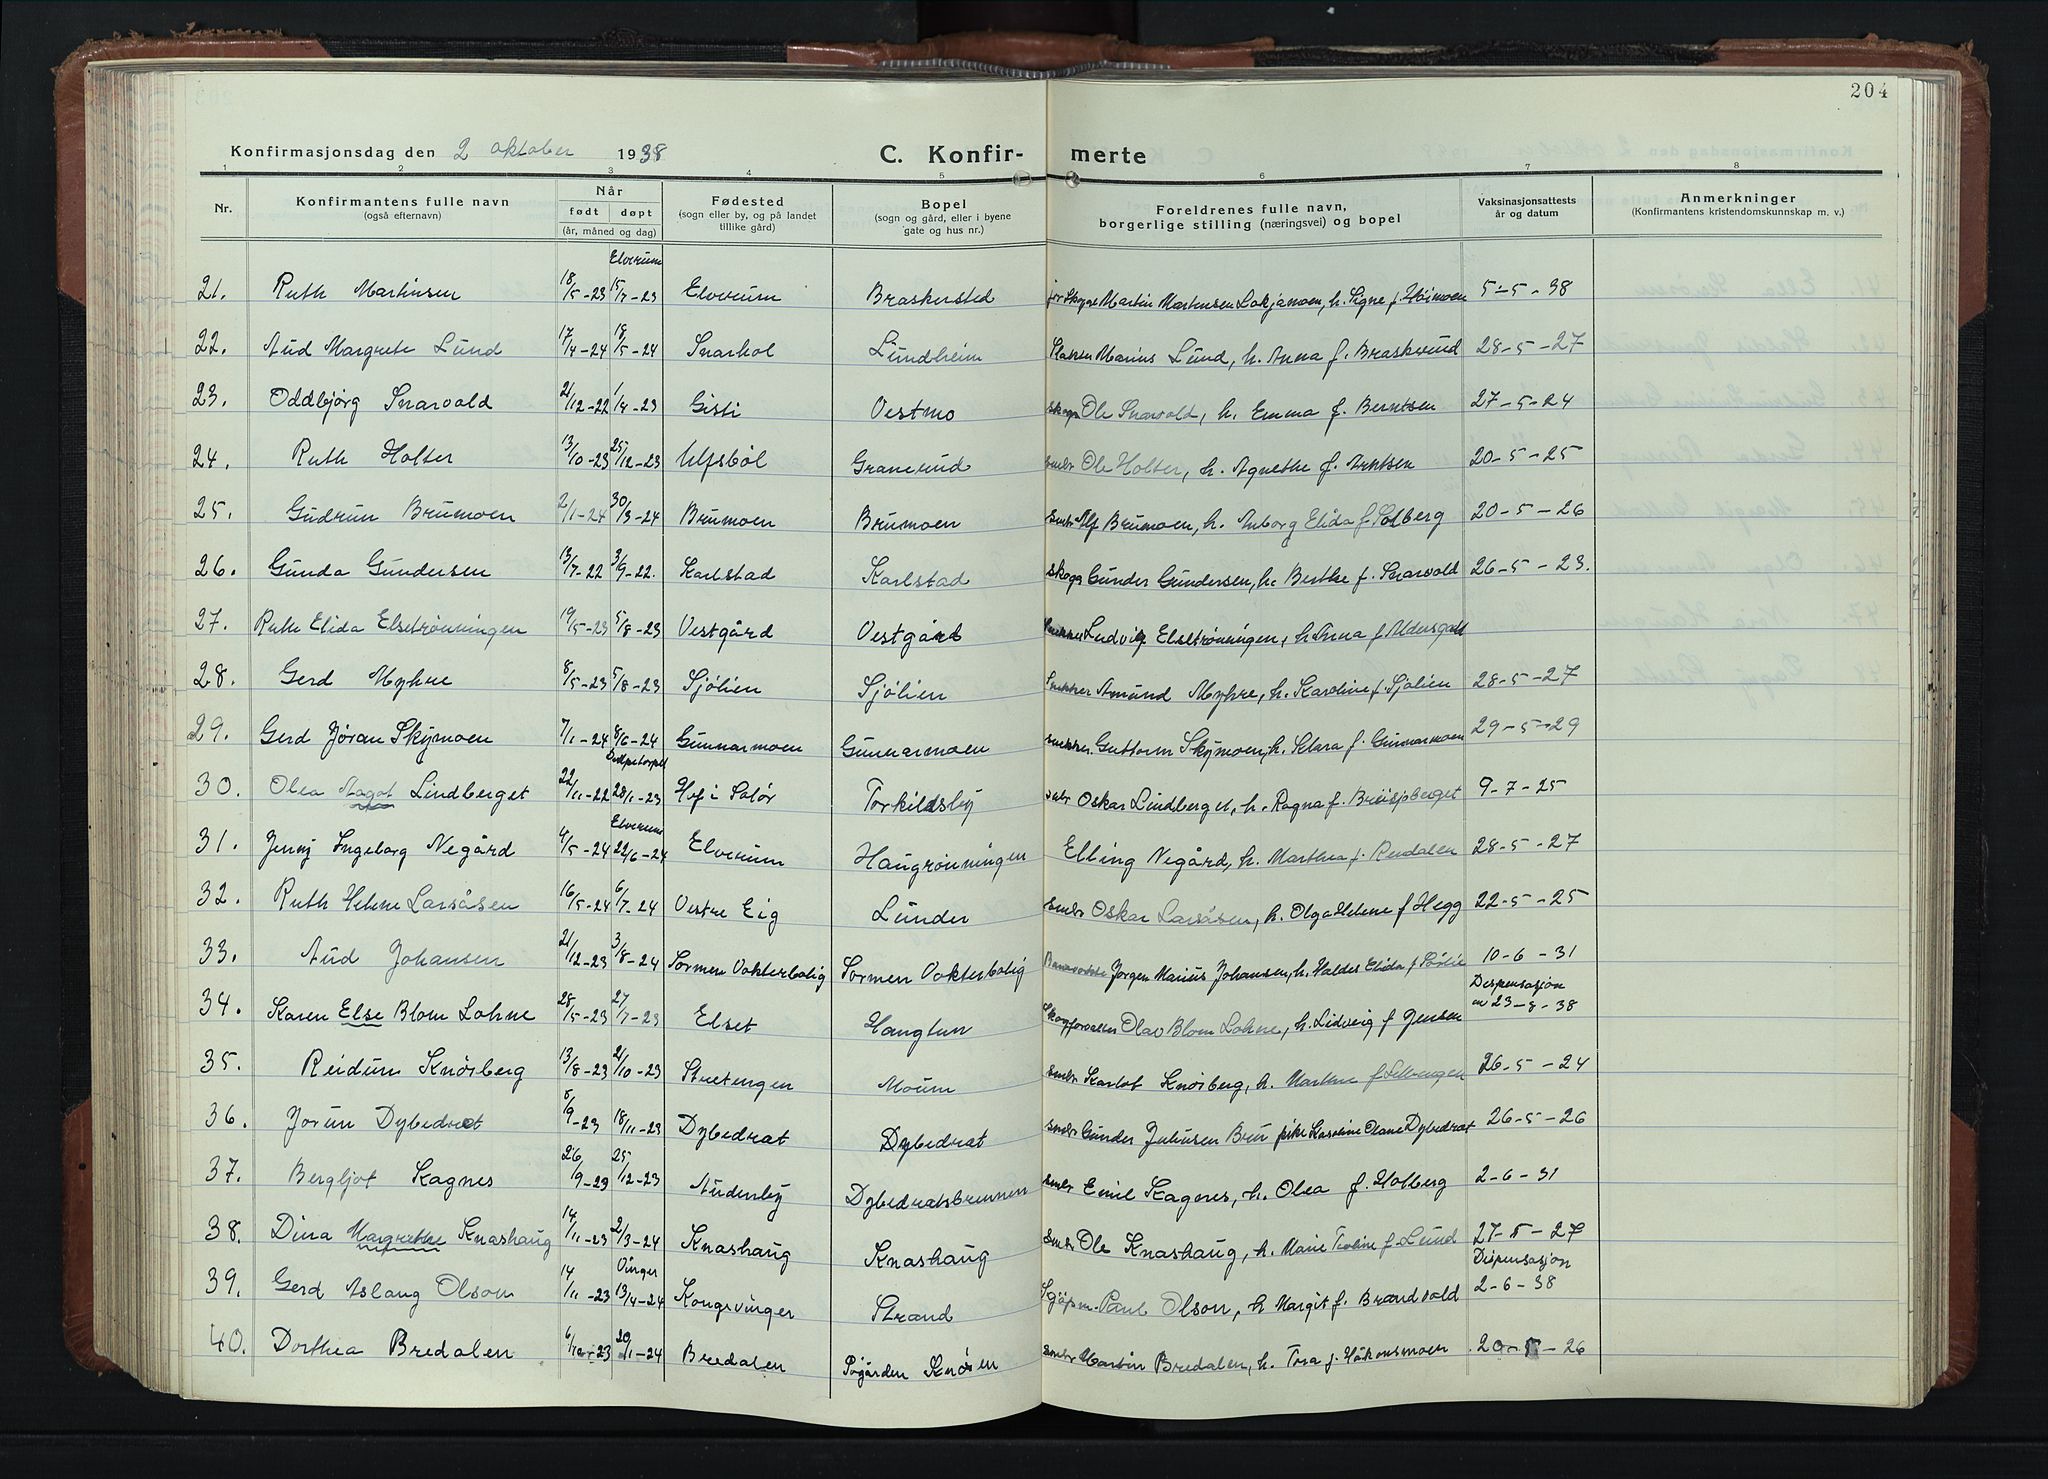 204
Konfirmasjonsdag den 2 oktober 1938
C. Konfir- merte
1 2 3 4 5 6 7 8
Nr. Konfirmantens fulle navn (også efternavn) Når født døpt (år, måned og dag) Fødested (sogn eller by, og på landet tillike gård) Bopel (sogn og gård, eller i byene gate og hus nr.) Foreldrenes fulle navn, borgerlige stilling (næringsvei) og bopel Vaksinasjonsattests år og datum Anmerkninger (Konfirmantens kristendomskunnskap m. v.)
Elverum
21. Ruth Martinsen 18/5-23 15/7-23 Elverum Braskersted Martin Martinsen h. Signe f. 5-5-38
22. Aud Margrete Lund 17/4-24 18/5-24 Snarhol Lundheim Marius Lund, h. Anna f. Braskerud 28-5-27
23. Oddbjørg Snarvold 21/12-22 1/4-23 Gisti Vestmo Ole Snarvold, h. Emma f. Berntsen 27-5-24
24. Ruth Holter 13/10-23 25/12-23 Ulfsbøl Granerud smbr Ole Holter, h. Agnethe f. Arntsen 20-5-25
25. Gudrun Brumoen 2/1-24 30/3-24 Brumoen Brumoen smbr Alf Brumoen, h. Anborg Elida f. Solberg 20-5-26
26. Gunda Gundersen 13/7-22 3/9-22. Karlstad Karlstad skogs Gunder Gundersen, h. Berthe f. Snarvold 26-5-23.
27. Ruth Elida Elsetrønningen 19/5-23 5/8-23 Vestgård Vestgård Ludvig Elsetrønningen, h. Anna f.
28. Gerd Myhre 8/5-23 5/8-23 Sjølien Sjølien Snekker Amund Myhre, h. Karoline f. Sjølien 28-5-27
29. Gerd Jøran Skymoen 7/1-24 8/6-24 Gunnarmoen Gunnarmoen snekker. Guttorm Skymoen, h. Klara f. Gunnarmoen 29-5-29
30. Olea Aagot Lindberget 22/11-22 28/1-23 Hof i Solør Torkildsby Oskar Lindberget, h. Ragna f. 9-7-25
Elverum
31. Jenny Ingeborg Negård 4/5-24 22/6-24 Elverum Haugrønningen Elling Negård, h. Marthea f. 28-5-27
32. Ruth Helene Larsåsen 16/5-24 6/7-24 Vestre Eig Lunder smbr Oskar Larsåsen, h. Olga Helene f. Hegg 22-5-25
33. Aud Johansen 21/12-23 3/8-24 Sormen Vokterbolig Sormen Vokterbolig Jørgen Marius Johansen, h. Valdes Elida f. 10-6-31
Dispensasjon
34. Karen Else Blom Lohne 28/5-23 27/7-23 Elset Haugtun Skogforvalter Olav Blom Lohne, h. Lidveig f. Jensen av 23-8-38
35. Reidun Knøsberg 13/8-23 21/10-23 Stretengen Moum smbr Karlot Knøsberg, h. Marthe f. 26-5-24
36. Jorun Dybedrat 5/9-23 18/11-23 Dybedrat Dybedrat smbr Gunder Juliusen Bru pike Karoline Olane Dybedrat 26-5-26
37. Bergljot Kagnes 26/9-23 25/12-23 Audenby Dybedratsbrennen smbr Emil Kagnes, h. Olea f. Holberg 2-6-31
38. Dina Margrethe Knashaug 14/11-23 2/3-24 Knashaug Knashaug smbr Ole Knashaug, h. Marie f. Lund 27-5-27
Vinger Dispensasjon
39. Gerd Aslaug Olson 14/11-23 13/4-24 Kongsvinger Strand Kjøpm. Paul Olson, h. Margit f. Brandvold 2-6-38
40. Dorthea Bredalen 6/10-23 20/1-24 Bredalen Pøgården Knøsen smbr Martin Bredalen, h. Tora f. Håkonsmoen 20-5-26